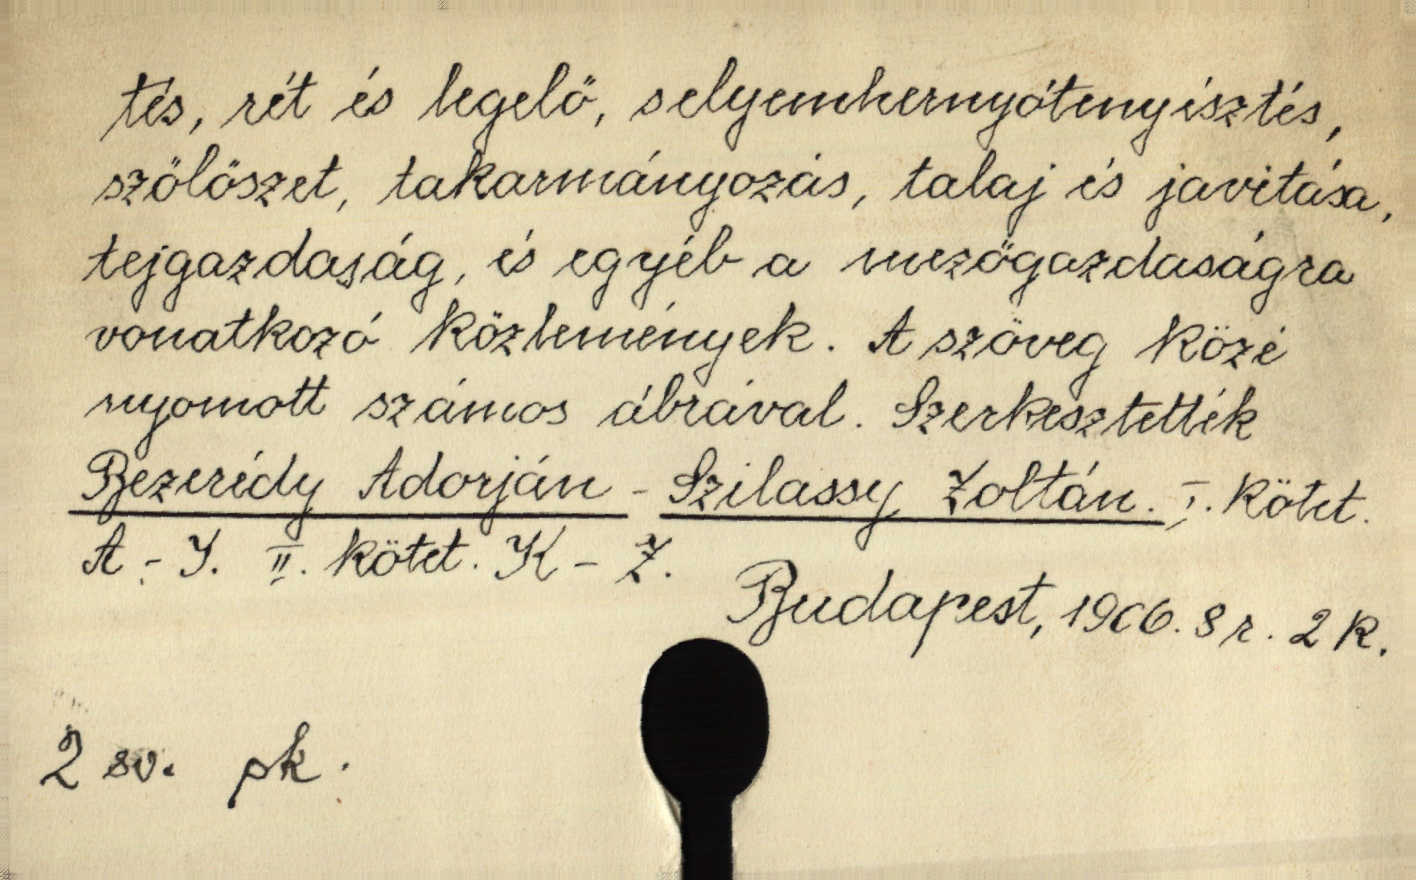 tés, rét és legelő, selyemhernyótenyésztés,
szőlőszet, takarmányozás, talaj és javitása,
tejgazdaság, és egyéb a mezőgazdaságra
vonatkozó közlemények. A szöveg közé
nyomott számos ábrával. Szerkesztették
Bezerédy Adorján - Szilassy Zoltán. I. kötet.
A - J. II. kötet. K - Z.
Budapest, 1906. 8 r. 2 K.
2 sv. pk.